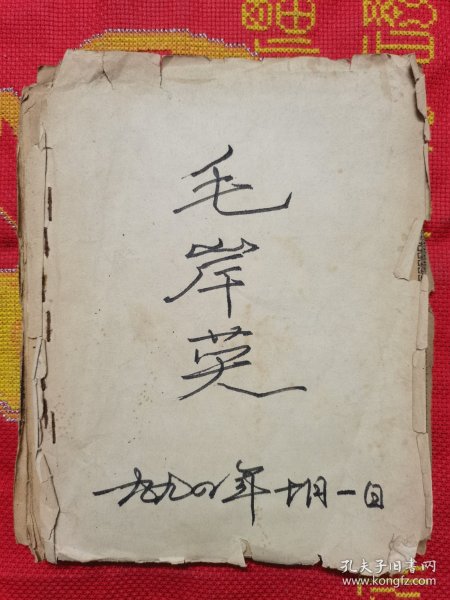 毛岸英
一九九〇年十月一日
孔夫子旧书网
www.kongfz.com